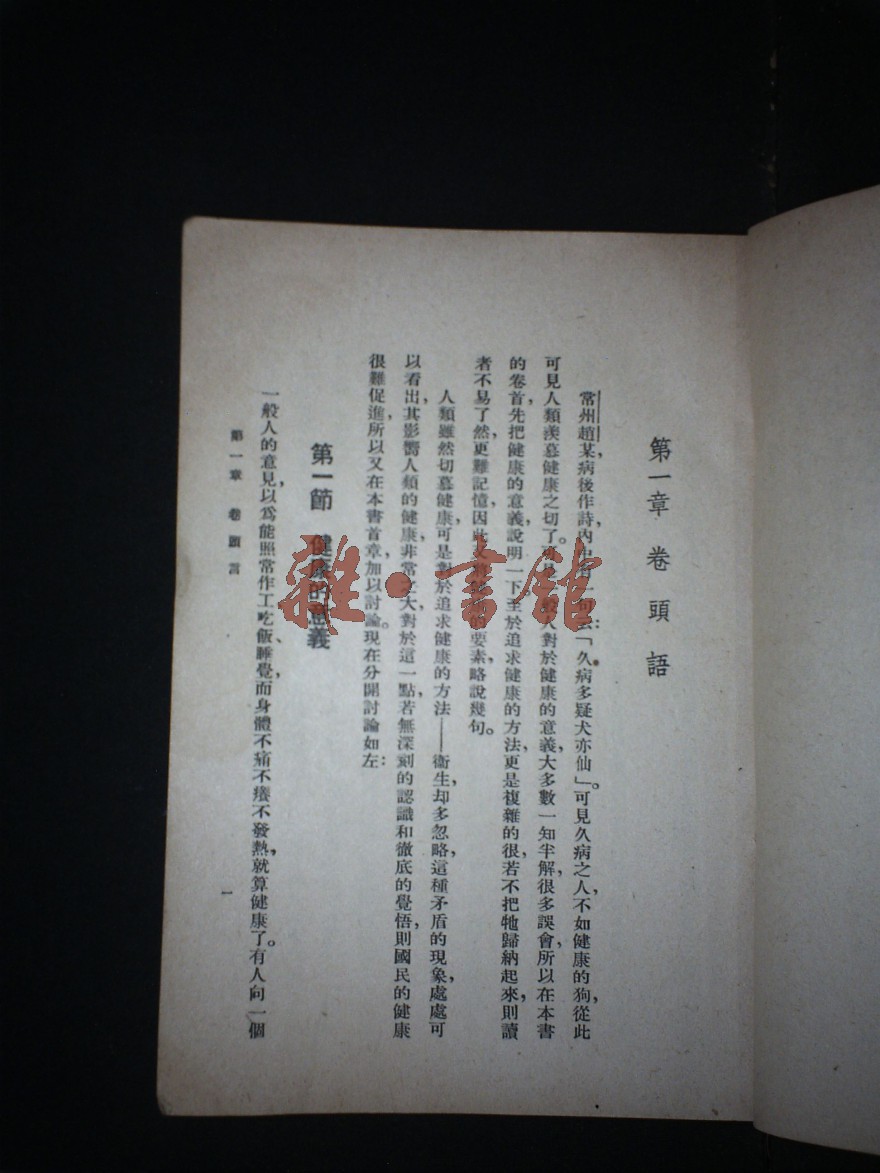 第一章 卷頭語
常州趙某病後作詩,內中有一句云:「久病多疑犬亦仙」。可見久病之人,不如健康的狗,從此
可見人類羨慕健康之切了。 人對於健康的意義,大多數一知半解,很多誤會,所以在本書
的卷首,先把健康的意義,說明一下。至於追求健康的方法,更是複雜的很,若不把牠歸納起來,則讀
者不易了然,更難記憶,因此又將 的要素,略說幾句。
人類雖然切慕健康,可是對於追求健康的方法——衞生却多忽略,這種矛盾的現象,處處可
以看出,其影響人類的健康,非常之大,對於這一點,若無深刻的認識和徹底的覺悟,則國民的健康
很難促進,所以又在本書首章,加以討論。現在分開討論如左:
第一節 健康的意義
一般人的意見,以爲能照常作工、吃飯、睡覺,而身體不痛不癢不發熱,就算健康了。有人向一個
第一章 卷頭言
一
雜·書館